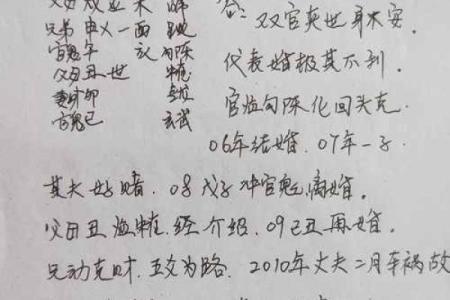 父母戌应未
兄弟申乂一酉
官鬼午 勾陈
父母丑一世
妻财卯
官鬼巳 玄武
双官夹世身不安.
代表婚极其不利.
官临勾陈化回头克.
06年结婚.07年一子.
其夫好赌.08戊子冲官鬼离婚.
父母丑 经介绍.09己丑再婚.
兄动克财.五爻为路.2010年丈夫二月车祸故